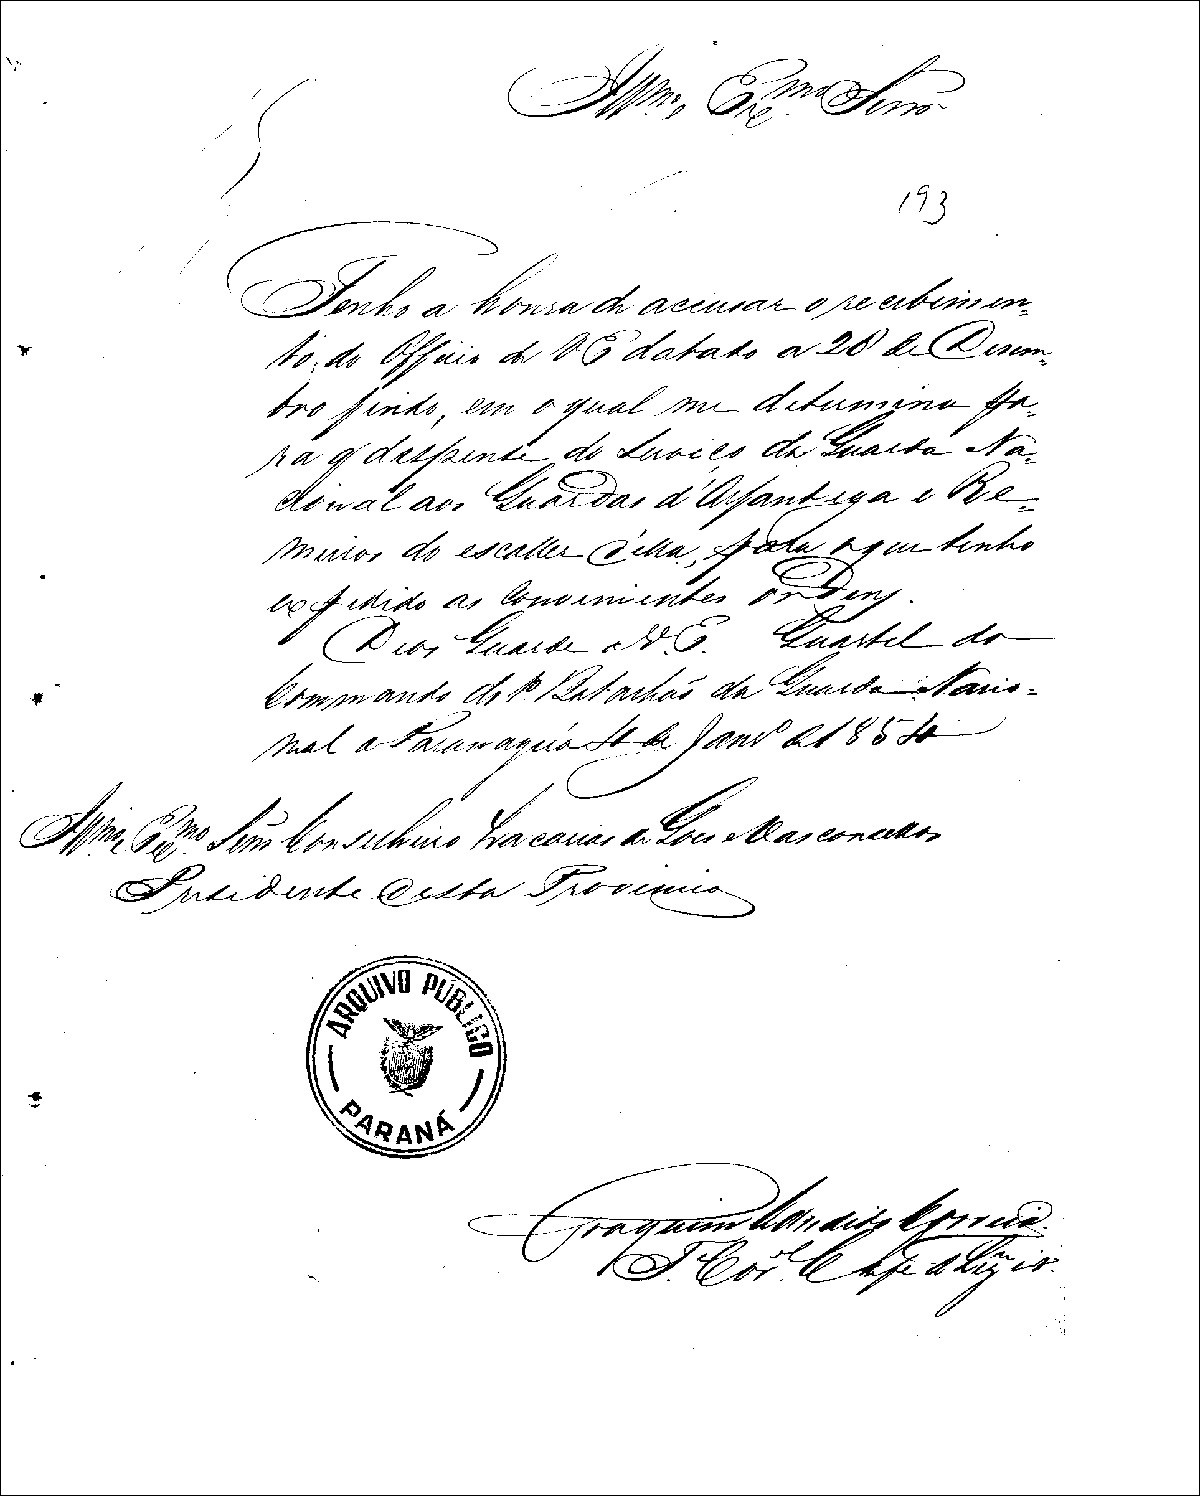 Illmo. Exmo. Senr.
193
Tenho a honra de accusar o recebimen-
to, do Officio de V E datado a 20 de Desem-
bro findo, em o qual me determina pa-
ra q' despense do servico da Guarda Na-
cional aos Guardas d'Alfantega e Re-
meiros do escaller d'ella, para o que tenho
expedido as convenientes ordens.
Deos Guarde a V. E. Quartel do
Commando do Batalhão da Guarda Nacio-
nal de Paranaguá 4 de Janro. de 1854
Illmo. Exmo. Senr. Conselheiro Zacarias de Goes e Vasconcellos
Presidente desta Provincia
ARQUIVO PÚBLICO
PARANÁ
Joaquim Candido Correia
Te. Corel. Chefe